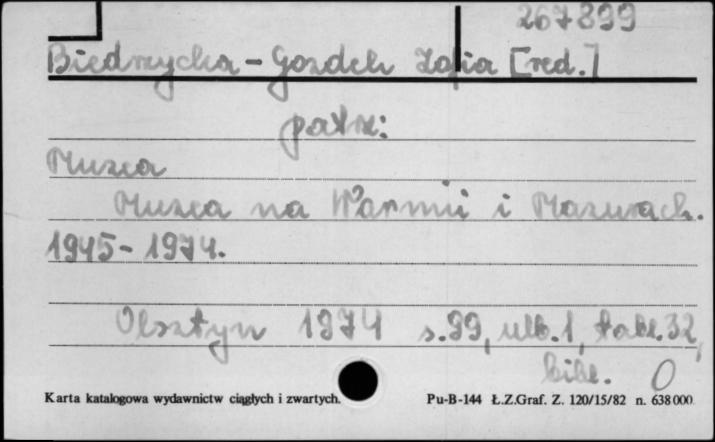 267899
Biedrzycka-Gozdek Zofia [red.]
patrz:
Muzea
Muzea na Warmii i Mazurach.
1945-1974.
Olsztyn 1974 s.99, nlb.1, tabl.32,
bibl. O
Karta katalogowa wydawnictw ciągłych i zwartych. Pu-B-144 Ł.Z.Graf. Z. 120/15/82 n. 638000